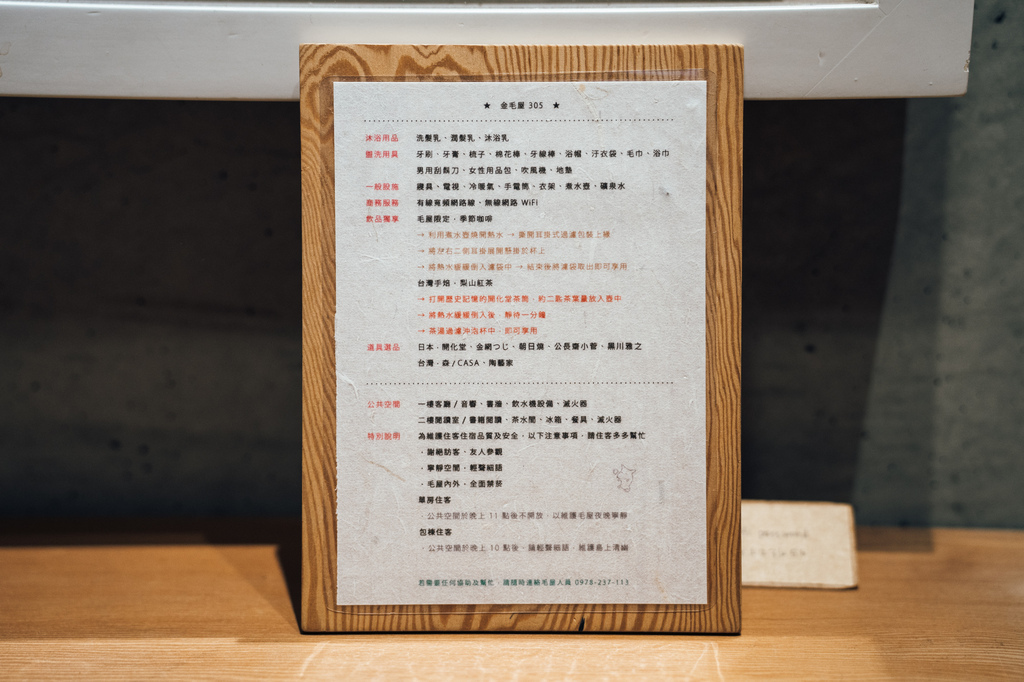 ★ 金毛屋 305 ★
沐浴用品 洗髮乳、潤髮乳、沐浴乳
盥洗用具 牙刷、牙膏、梳子、棉花棒、牙線棒、浴帽、汙衣袋、毛巾、浴巾
男用刮鬍刀、女性用品包、吹風機、地墊
一般設施 寢具、電視、冷暖氣、手電筒、衣架、煮水壺、礦泉水
商務服務 有線寬頻網路線、無線網路 WiFi
飲品獨享 毛屋限定．季節咖啡
→ 利用煮水壺燒開熱水 → 撕開耳掛式過濾包裝上緣
→ 將左右二側耳掛展開懸掛於杯上
→ 將熱水緩緩倒入濾袋中 → 結束後將濾袋取出即可享用
台灣手焙．梨山紅茶
→ 打開歷史記憶的開化堂茶筒，約二匙茶葉量放入壺中
→ 將熱水緩緩倒入後，靜待一分鐘
→ 茶湯過濾沖泡杯中，即可享用
道具選品 日本．開化堂、金網つじ、朝日燒、公長齋小菅、黑川雅之
台灣．森 / CASA、陶藝家
公共空間 一樓客廳 / 音響、書牆、飲水機設備、滅火器
二樓閱讀室 / 書籍閱讀、茶水間、冰箱、餐具、滅火器
特別說明 為維護住客住宿品質及安全，以下注意事項，請住客多多幫忙
．謝絕訪客、友人參觀
．寧靜空間，輕聲細語
．毛屋內外，全面禁菸
單房住客
．公共空間於晚上 11 點後不開放，以維護毛屋夜晚寧靜
包棟住客
．公共空間於晚上 10 點後，請輕聲細語，維護島上清幽
若需要任何協助及幫忙，請隨時連絡毛屋人員 0978-237-113